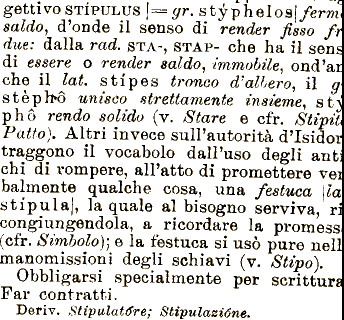 gettivo STÍPULUS |= gr. stýphelos| fermo
saldo, d'onde il senso di render fisso fr
due: dalla rad. STA-, STAP- che ha il sens
di essere o render saldo, immobile, ond'an
che il lat. stípes tronco d'albero, il g
stèphô unisco strettamente insieme, stý
phô rendo solido (v. Stare e cfr. Stipit
Patto). Altri invece sull'autorità d'Isidor
traggono il vocabolo dall'uso degli anti
chi di rompere, all'atto di promettere ver
balmente qualche cosa, una festuca |la
stípula|, la quale al bisogno serviva, ri
congiungendola, a ricordare la promess
(cfr. Simbolo); e la festuca si usò pure nell
manomissioni degli schiavi (v. Stipo).
Obbligarsi specialmente per scrittura
Far contratti.
Deriv. Stipulatóre; Stipulazióne.